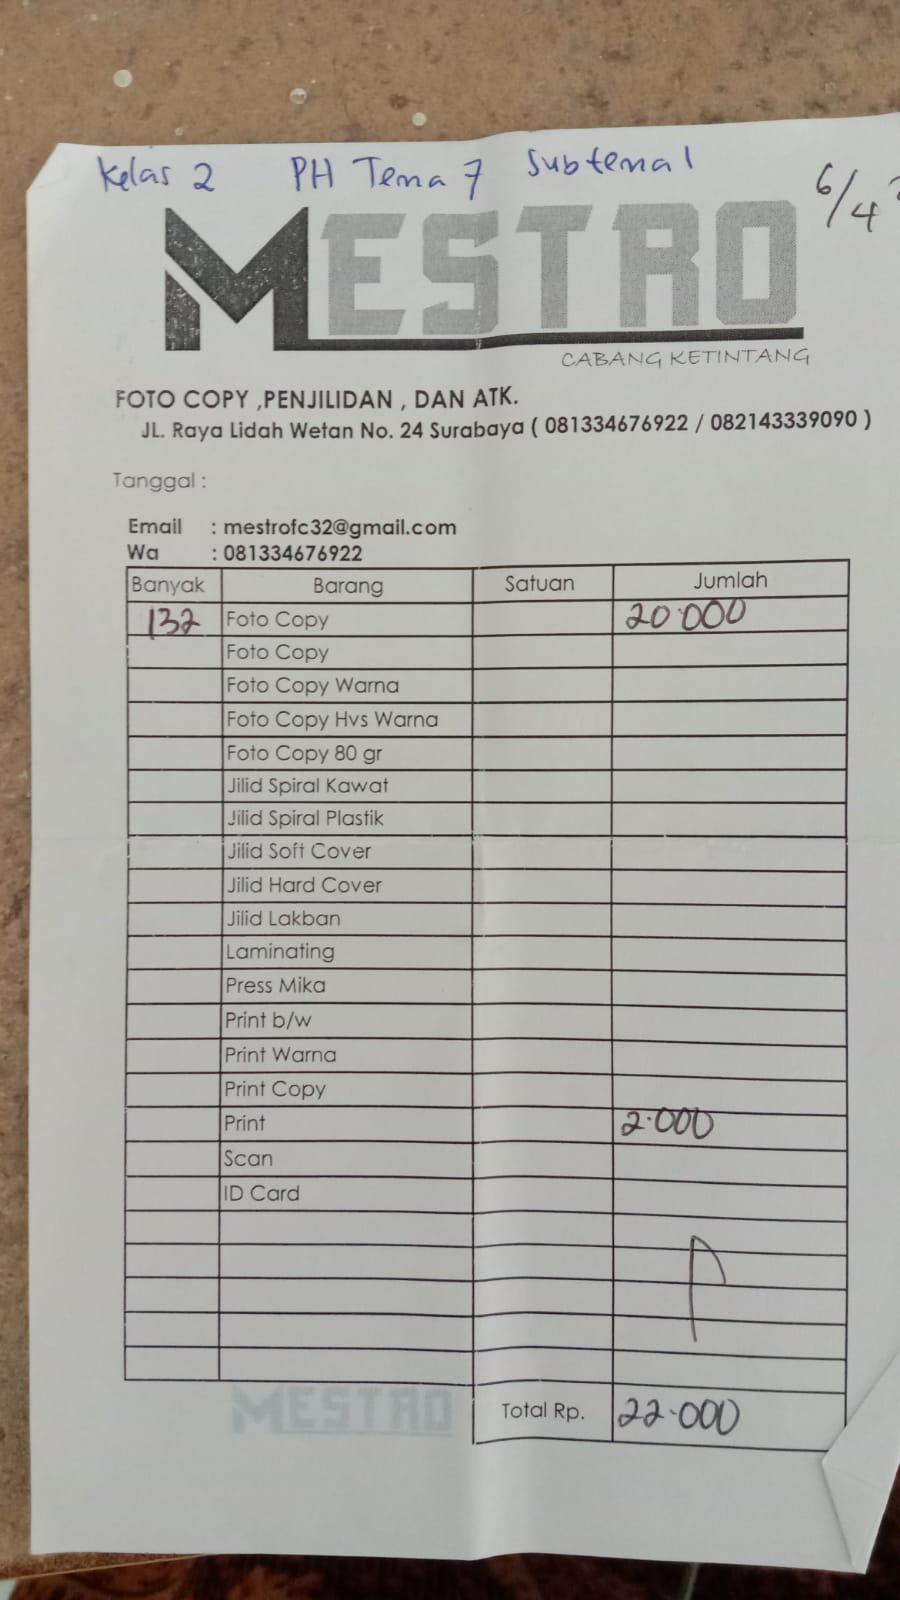 Kelas 2 PH Tema 7 Subtema 1
6/4
MESTRO
CABANG KETINTANG
FOTO COPY ,PENJILIDAN , DAN ATK.
JL. Raya Lidah Wetan No. 24 Surabaya ( 081334676922 / 082143339090 )
Tanggal :
Email : mestrofc32@gmail.com
Wa : 081334676922
Banyak Barang Satuan Jumlah
132 Foto Copy 20.000
Foto Copy
Foto Copy Warna
Foto Copy Hvs Warna
Foto Copy 80 gr
Jilid Spiral Kawat
Jilid Spiral Plastik
Jilid Soft Cover
Jilid Hard Cover
Jilid Lakban
Laminating
Press Mika
Print b/w
Print Warna
Print Copy
Print 2.000
Scan
ID Card
MESTRO Total Rp. 22.000